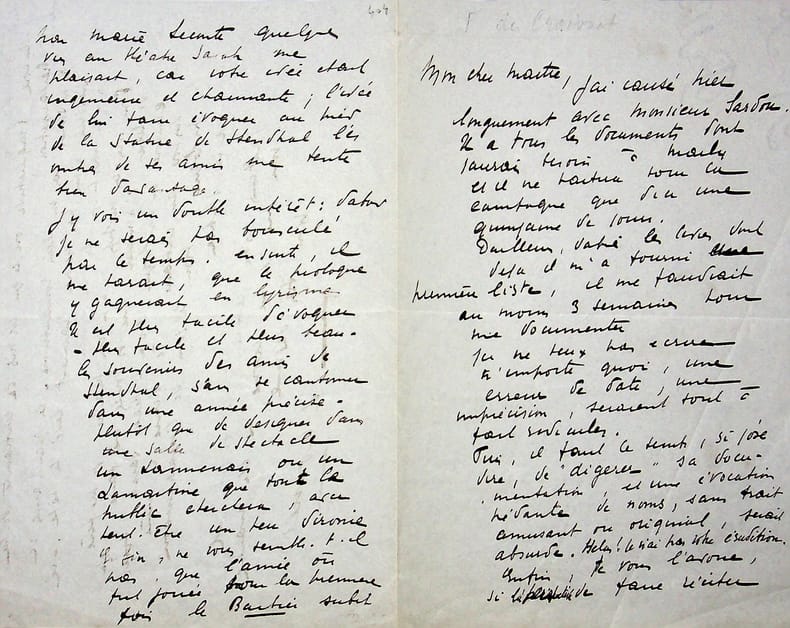 404
F de Croisset
Mon cher maitre, j'ai causé hier
longuement avec monsieur Sardou.
Il a tous les documents dont
j'aurais besoin à Marly
et il ne partira pour la
campagne que dans une
quinzaine de jours.
D'ailleurs, d'après les livres dont
déjà il m'a fourni une
première liste, il me faudrait
au moins 3 semaines pour
me documenter
Je ne veux pas ecrire
n'importe quoi, une
erreur de date, une
imprécision, seraient tout à
fait ridicules.
Puis, il faut le temps, si j'ose
dire, de "digérer" sa docu-
mentation, et une évocation
pédante de noms, sans trait
amusant ou original, serait
absurde. Helas! Je n'ai pas votre érudition.
Enfin, je vous l'avoue,
si de faire réciter
par marie Leconte quelques
vers au théatre Sarah me
plaisait, car votre idée etait
ingenieuse et charmante; l'idée
de lui faire évoquer au pied
de la Statue de Stendhal les
ombres de ses amis me tente
bien davantage.
J'y vois un double intérêt: d'abord
je ne serais pas bousculé
par le temps. ensuite, il
me parait, que le prologue
y gagnerait en lyrisme.
Il est plus facile d'évoquer
- plus facile et plus beau -
les souvenirs des amis de
Stendhal, sans se cantonner
dans une année précise -
plutôt que de designer dans
une salle de spectacle
un Lammenais ou un
Lamartine, que tout le
public cherchera, avec
peut-être un peu d'ironie
Enfin, ne vous semble-t-il
pas, que l'année où
fut jouée pour la première
fois le Barbier subit